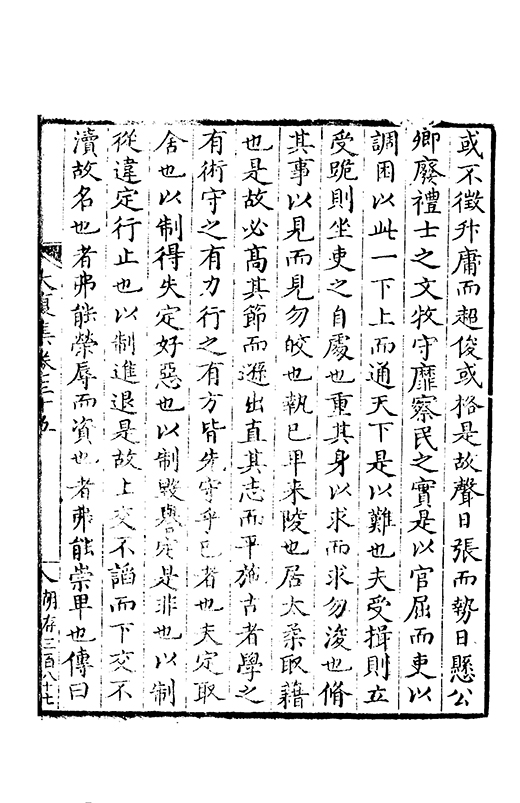 或不徵升庸而超俊或格是故聲日張而勢日懸公
卿廢禮士之文牧守靡察民之實是以官屈而吏以
調困以此一下上而通天下是以難也夫受揖則立
受跪則坐吏之自處也重其身以求而求勿浚也脩
其事以見而見勿皎也執已卑来陵也居太柔取藉
也是故必髙其節而遜出直其志而平施古者學之
有術守之有力行之有方皆先守乎己者也夫定取
舍也以制得失定好惡也以制毀譽定是非也以制
從違定行止也以制進退是故上交不謟而下交不
瀆故名也者弗能榮辱而資也者弗能崇卑也傳曰
大復集卷三十五
八 三百八十七